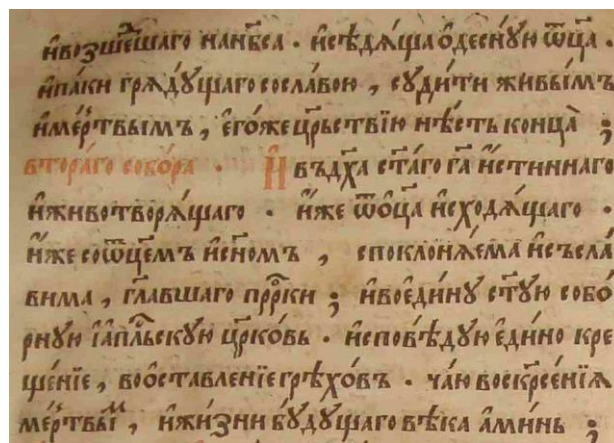 и҆возше́шаго нанб҃са . и҆сѣдѧ́ща ѡ҆деснꙋ́ю ѿц҃а .
и҆па́ки грѧдꙋ́щаго сосла́вою , сꙋди́ти живы́мъ
и҆ме́ртвымъ , є҆го́же црⷭ҇ьствїю нѣ́сть конца̀ ;
втора́го собо́ра . И҆ въдх҃а ст҃а́го гⷭ҇а и҆́стиннаго
и҆животворѧ́щаго . и҆́же ѿѻ҆ц҃а и҆сходѧ́щаго .
и҆́же соѿц҃емъ и҆сн҃омъ , спокланѧ́ема и҆съсла́
вима , гл҃авшаго прⷪ҇ро́ки ; и҆воєди́нꙋ ст҃ꙋ́ю собо́
рнꙋю і҆а҆пⷭ҇льскꙋю цр҃ковь . и҆сповѣ́дꙋю є҆ди́но кре
ще́нїе , воѡ҆ставле́нїе грѣхо́въ . ча́ю воскрⷭ҇е́нїѧ
ме́ртвыⷨ , и҆жи́зни бꙋ́дꙋщаго вѣ́ка а҆ми́нь ;